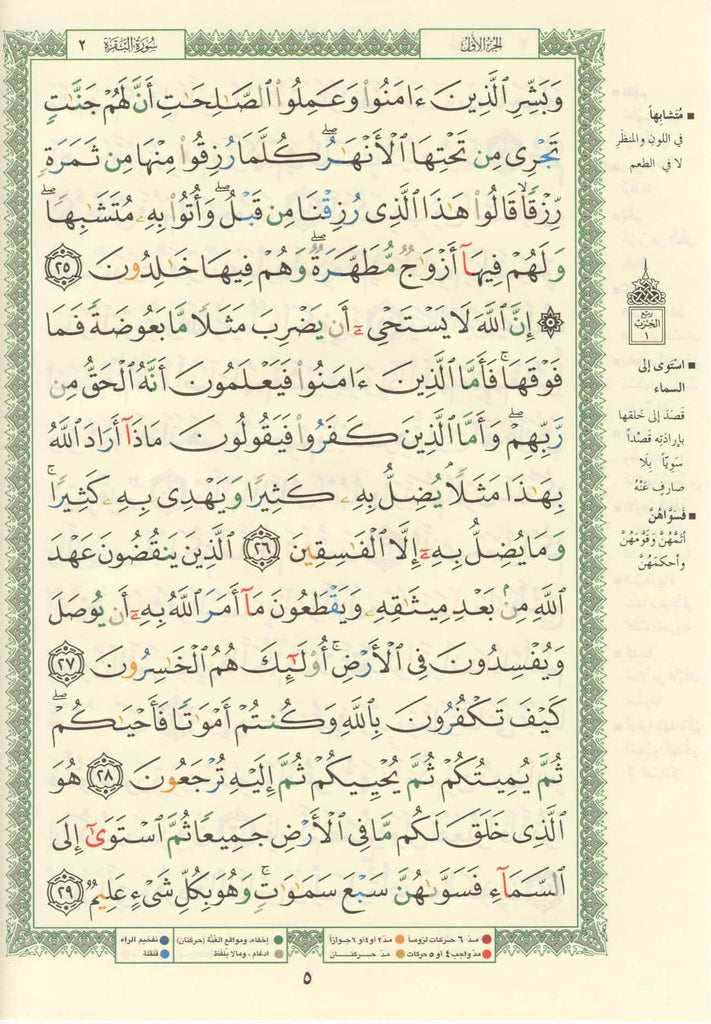 سُورَةُ البَقَرَةِ ٢
الجُزْءُ الأَوَّلُ
وَبَشِّرِ ٱلَّذِينَ ءَامَنُوا۟ وَعَمِلُوا۟ ٱلصَّـٰلِحَـٰتِ أَنَّ لَهُمْ جَنَّـٰتٍ
تَجْرِى مِن تَحْتِهَا ٱلْأَنْهَـٰرُ ۖ كُلَّمَا رُزِقُوا۟ مِنْهَا مِن ثَمَرَةٍ
رِّزْقًا ۙ قَالُوا۟ هَـٰذَا ٱلَّذِى رُزِقْنَا مِن قَبْلُ ۖ وَأُتُوا۟ بِهِۦ مُتَشَـٰبِهًا ۖ
وَلَهُمْ فِيهَآ أَزْوَٰجٌ مُّطَهَّرَةٌ ۖ وَهُمْ فِيهَا خَـٰلِدُونَ ٢٥
۞ إِنَّ ٱللَّهَ لَا يَسْتَحْىِۦٓ أَن يَضْرِبَ مَثَلًا مَّا بَعُوضَةً فَمَا
فَوْقَهَا ۚ فَأَمَّا ٱلَّذِينَ ءَامَنُوا۟ فَيَعْلَمُونَ أَنَّهُ ٱلْحَقُّ مِن
رَّبِّهِمْ ۖ وَأَمَّا ٱلَّذِينَ كَفَرُوا۟ فَيَقُولُونَ مَاذَآ أَرَادَ ٱللَّهُ
بِهَـٰذَا مَثَلًا ۘ يُضِلُّ بِهِۦ كَثِيرًا وَيَهْدِى بِهِۦ كَثِيرًا ۚ
وَمَا يُضِلُّ بِهِۦٓ إِلَّا ٱلْفَـٰسِقِينَ ٢٦ ٱلَّذِينَ يَنقُضُونَ عَهْدَ
ٱللَّهِ مِنۢ بَعْدِ مِيثَـٰقِهِۦ وَيَقْطَعُونَ مَآ أَمَرَ ٱللَّهُ بِهِۦٓ أَن يُوصَلَ
وَيُفْسِدُونَ فِى ٱلْأَرْضِ ۚ أُو۟لَـٰٓئِكَ هُمُ ٱلْخَـٰسِرُونَ ٢٧
كَيْفَ تَكْفُرُونَ بِٱللَّهِ وَكُنتُمْ أَمْوَٰتًا فَأَحْيَـٰكُمْ ۖ
ثُمَّ يُمِيتُكُمْ ثُمَّ يُحْيِيكُمْ ثُمَّ إِلَيْهِ تُرْجَعُونَ ٢٨ هُوَ
ٱلَّذِى خَلَقَ لَكُم مَّا فِى ٱلْأَرْضِ جَمِيعًا ثُمَّ ٱسْتَوَىٰٓ إِلَى
ٱلسَّمَآءِ فَسَوَّىٰهُنَّ سَبْعَ سَمَـٰوَٰتٍ ۚ وَهُوَ بِكُلِّ شَىْءٍ عَلِيمٌ ٢٩
■ مُتَشابهاً
في اللونِ والمنظَرِ
لا في الطعم
ربع
الحزب
١
■ اسْتَوى إلى
السماء
قَصَدَ إلى خَلقها
بإرادَتِه قَصْداً
سَويّاً بِلا
صارفٍ عَنْهُ
■ فَسَوَّاهُنَّ
أتمَّهُنَّ وَقَوَّمَهُنَّ
وأحكمَهُنَّ
مدّ ٦ حركات لزوماً مدّ ٢ او ٤ او ٦ جوازاً
مدّ واجب ٤ او ٥ حركات مدّ حركتان
إخفاء، ومواقع الغُنَّة (حركتان)
ادغام، وما لا يُلفظ
تفخيم الراء
قلقلة
٥